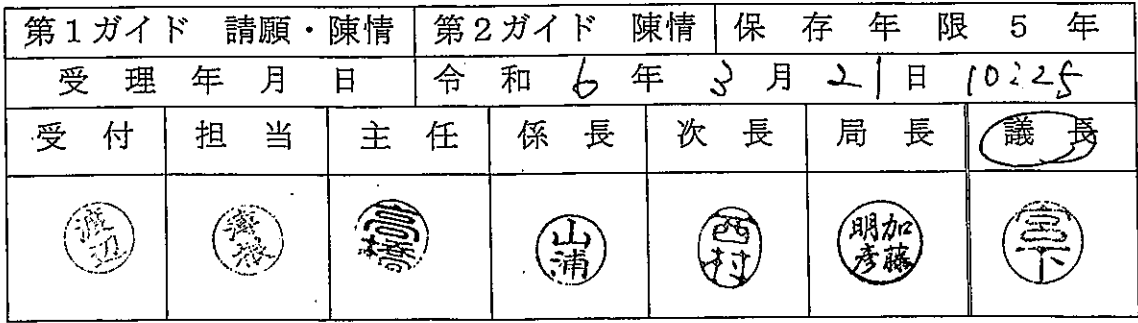 第1ガイド 請願・陳情 第2ガイド 陳情 保存年限5年
受理年月日 令和6年3月21日 10:25
受付 担当 主任 係長 次長 局長 議長
渡辺 高橋 山浦 西村 加藤明彦 宮下